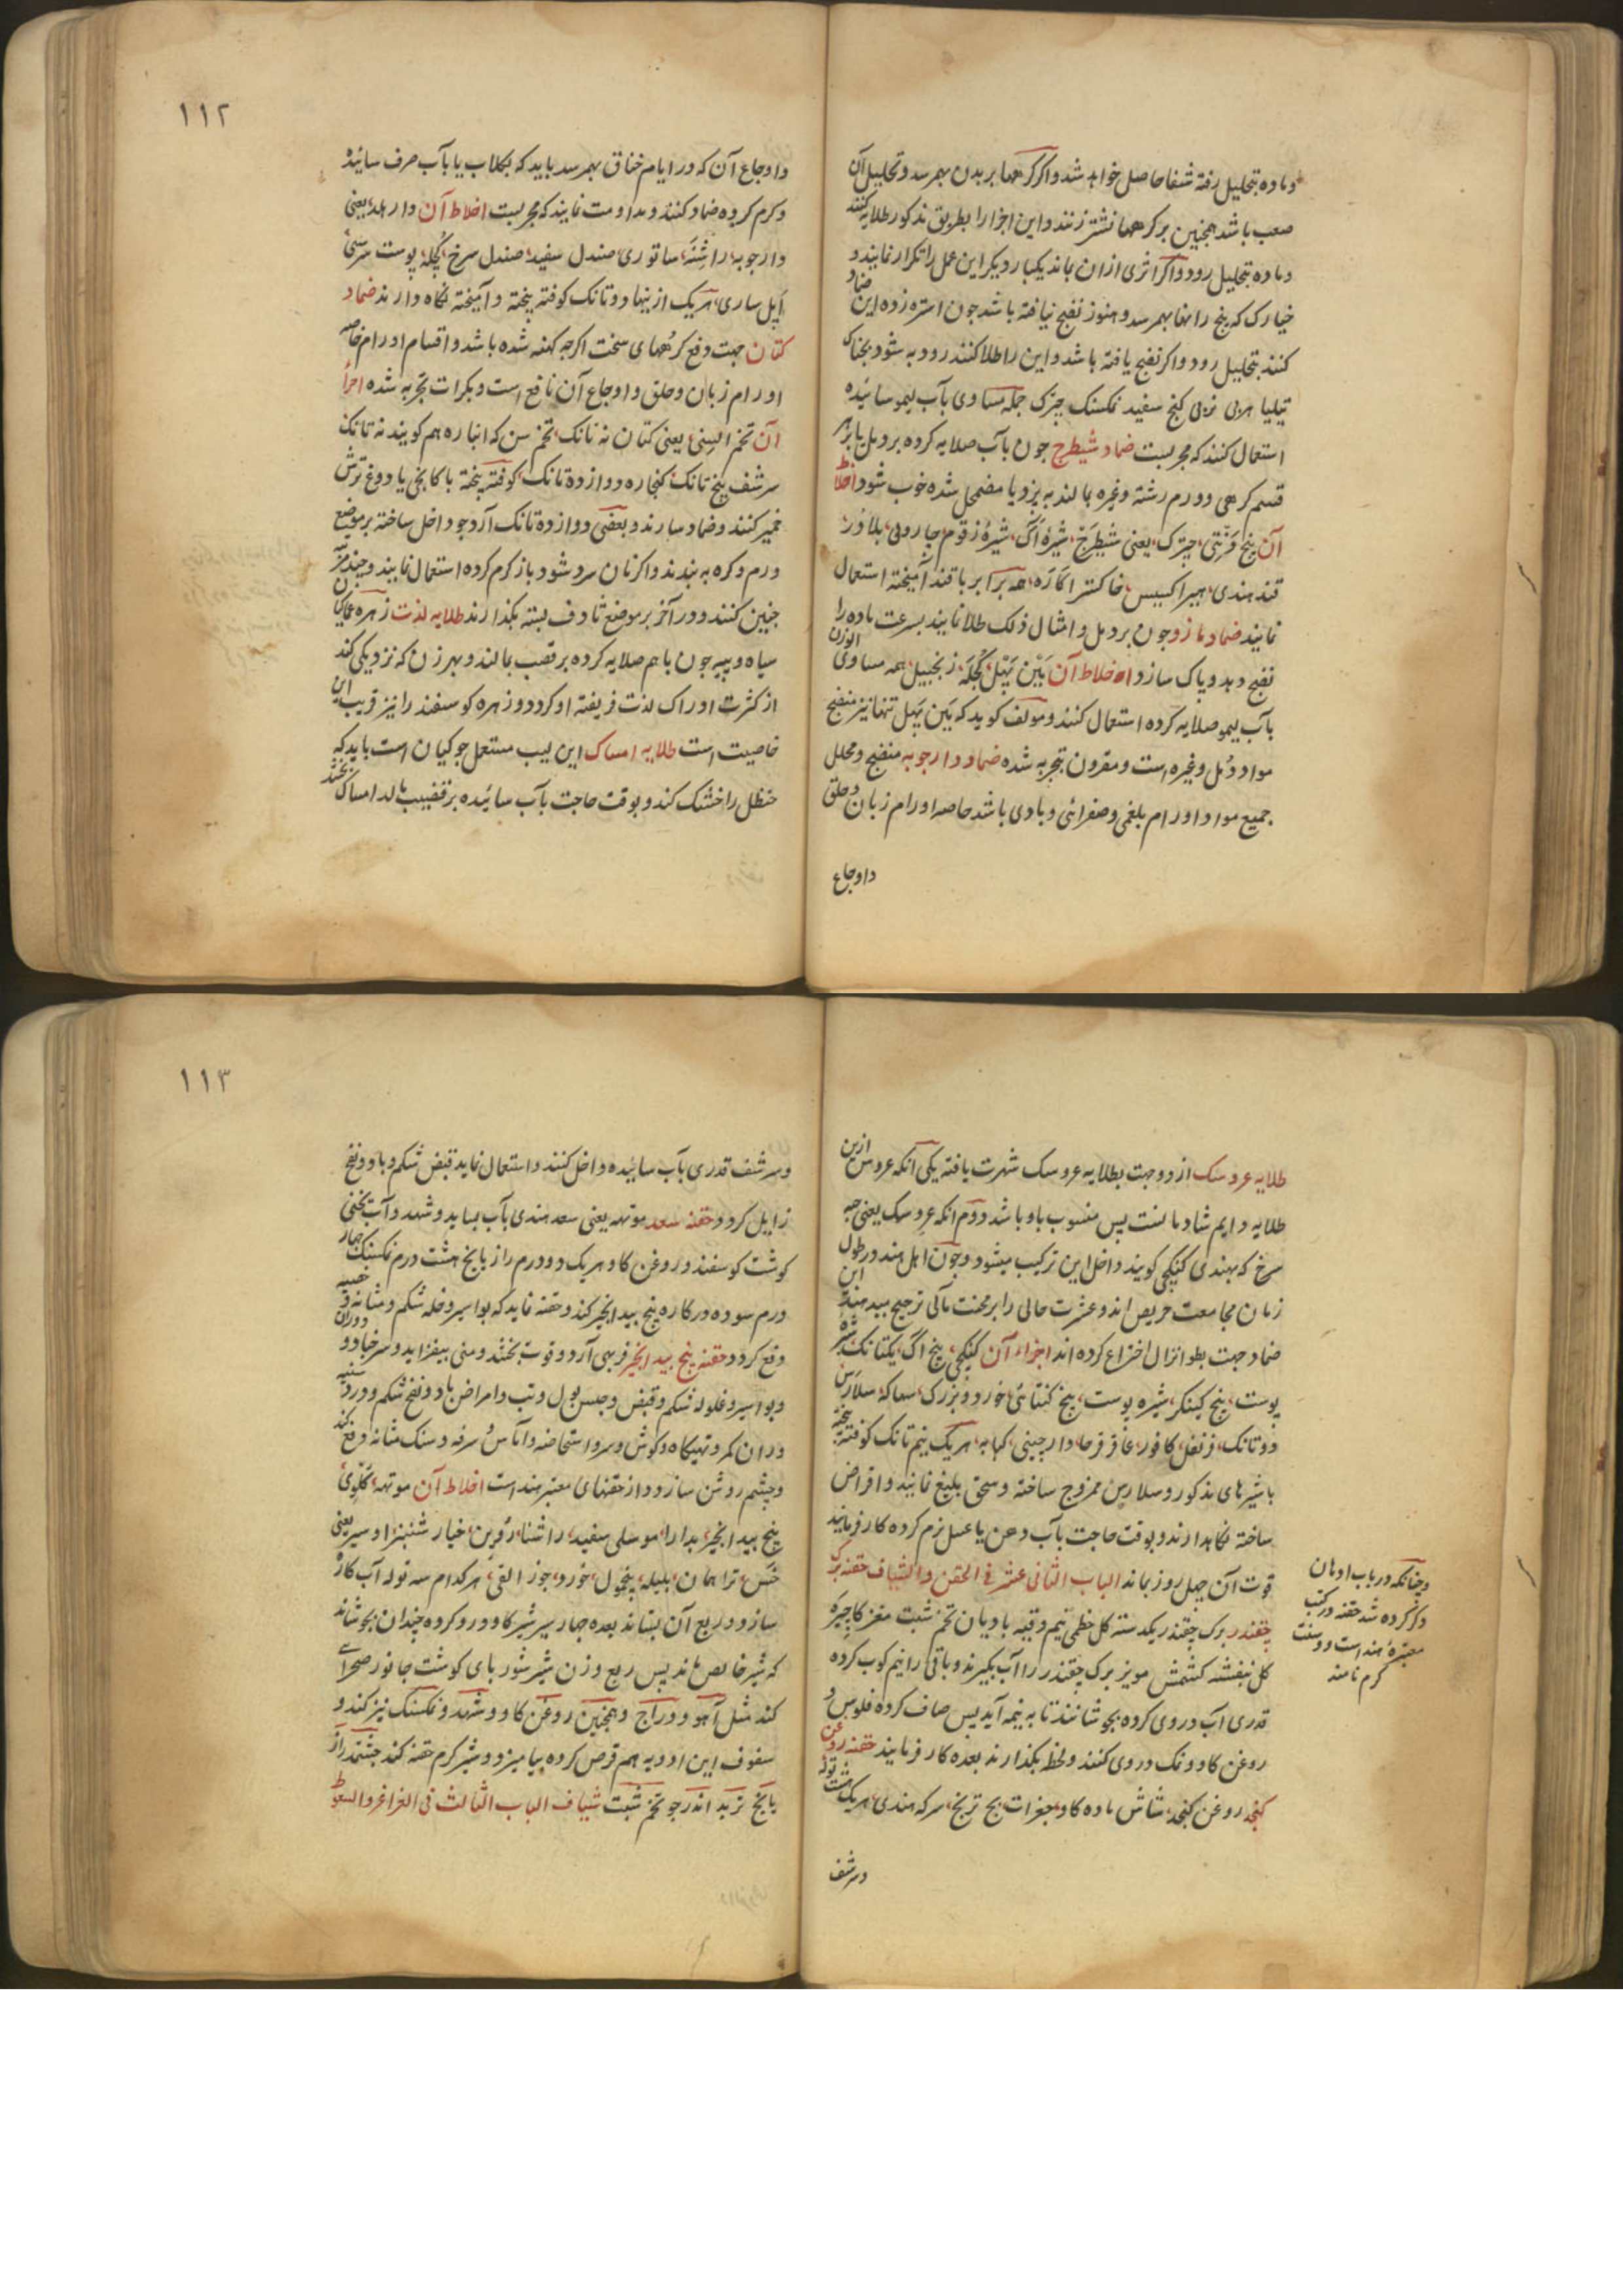 و ماده بتحلیل رفته شفا حاصل خواهد شد و اکر کرهها بر بدن بهمرسد و تحلیل آن
صعب باشد همچنین بر کرهها نشتر زنند و این اجزا را بطریق مذکور طلایه کنند
و ماده بتحلیل رود و اکر اثری ازان بماند یکبار دیکر این عمل را تکرار نمایند و ضماد
خیارک که بیخ رانها بهمرسد و هنوز نضج نیافته باشد جون استره زده این
کنند بتحلیل رود و اکر نضج یافته باشد و این را طلا کنند رود به شود
تیلیا کنج سفید نمکسنک چترک جمله مساوی بآب لیمو سائیده
استعمال کنند که مجربست ضماد شیطرج جون بآب صلایه کرده بر دمل یا بر هر
قسم کرهی و ورم رشته و غیره بمالند به پزد یا مضمحل شده خوب شود اخلاط
آن بیخ چترک، یعنی شیطرج، شیرهٔ آک، شیرهٔ زقوم بلادر،
قند هندی، هیرا کسیس، خاکستر همه برابر با قند آمیخته استعمال
نمایند ضماد مازو جون بر دمل و امثال ذلک طلا نمایند بسرعت ماده را
نضج دهد و پاک سازد اخلاط آن مَیْن پَهل کُچلَه، زنجبیل، همه مساوی الوزن
بآب لیمو صلایه کرده استعمال کنند و مولف کوید که مین پهل تنها نیز منضج
مواد دمل و غیره است و مقرون بتجربه شده ضماد دارجوبه منضج و محلل
جمیع مواد اورام بلغمی و صفرائی و بادی باشد خاصه اورام زبان و حلق
و اوجاع
١١٢
و اوجاع آن که در ایام خناق بهمرسد باید که بکلاب یا بآب صرف سائیده
و کرم کرده ضماد کنند و مداومت نمایند که مجربست اخلاط آن دار هلد، یعنی
دارجوبه، صندل سفید، صندل سرخ، کُچله، پوست
هریک ازینها دو تانک کوفته بیخته و آمیخته نکاه دارند ضماد
کتان جهت دفع کرههای سخت اکرجه کهنه شده باشد و اقسام اورام خاصه
اورام زبان و حلق و اوجاع آن نافع است و بکرات تجربه شده اجزأ
آن تخم السِی، یعنی کتان نه تانک، تخم سن که انباره هم کویند نه تانک
سرشف پنج تانک کنجاره دوازده تانک، کوفته بیخته با کانجی یا دوغ ترش
خمیر کنند و ضماد سازند و بعضی دوازده تانک آرد جو داخل ساخته بر موضع
ورم و کره به بندند و اکر نان سرد شود باز کرم کرده استعمال نمایند و چند مرتبه
جنین کنند و در آخر بر موضع تا دف بسته بکذارند طلایه لذت زهره ماکیان
سیاه و پیه جون باهم صلایه کرده بر قضیب بمالند و بهر زن که نزدیکی کند
از کثرت ادراک لذت فریفته او کردد و زهره کوسفند را نیز قریب این
خاصیت است طلایه امساک این لیپ مستعمل جوکیان است باید که
حنظل را خشک کند و بوقت حاجت بآب سائیده بر قضیب مالد امساک بخشد
طلایه عروسک از دو جهت بطلایه عروسک شهرت یافته یکی آنکه عروس ازین
طلایه دایم شادمانست پس منسوب باو باشد دوم آنکه عروسک یعنی حبه
سرخ که بهندی کُنکچی کویند داخل این ترکیب میشود و جون اهل هند در طول
زمان مجامعت حریص اند و عشرت حالی را بر محنت مآلی ترجیح میدهند این
ضماد جهت بطو انزال اختراع کرده اند اجزاء آن کنکچی، بیخ آک، یکتانک
پوست، بیخ کنیکر، شیره پوست، بیخ کتائی خورد و بزرک، سهاکه، سلارَس
دو تانک، قرنفل، کافور، عاقرقرحا، دارچینی، کبابه، هریک نیم تانک کوفته بیخته
با شیرهای مذکور و سلارس ممزوج ساخته و سحق بلیغ نمایند و اقراص
ساخته نکاهدارند و بوقت حاجت بآب دهن یا عسل نرم کرده کار فرمایند
قوت آن چهل روز بماند الباب الثانی عشر فی الحقن و الشیاف حقنه برک
چقندر برک چقندر یکدسته کل خطمی نیم وقیه بادیان تخم شبت مغز کاجیره
کل بنفشه کشمش مویز برک چقندر را آب بکیرند و باقی را نیم کوب کرده
قدری آب دروی کرده بجوشانند تا به نیمه آید پس صاف کرده فلوس و
روغن کاو و نمک دروی کنند و لحظه بکذارند بعده کار فرمایند حقنه روغن
کنجد روغن کنجد، شاش ماده کاو، جغرات، بیخ ترنج، سرکه هندی، هریک هشت توله
و سرشف
و جنانکه در باب ادهان
ذکر کرده شد حقنه در کتب
معتبره هند است و
کرم نامند
١١٣
و سرشف قدری بآب سائیده داخل کنند و استعمال نماید قبض شکم و باد و نفخ
زایل کردد حقنه سعد موتهه یعنی سعد هندی بآب بساید و شهد و آب یخنی
کوشت کوسفند و روغن کاو هریک دو درم رازیانج هشت درم نمکسنک چهار
درم سوده درکاره بیخ بید انجیر کند و حقنه نماید که بواسیر و غله شکم و مثانه و خصیه
دفع کردد حقنه بیخ بید انجیر فربهی آرد و قوت بخشد و منی بیفزاید و سرخباد و
و بواسیر و غلوله شکم و قبض و حبس بول و تب و امراض باد و نفخ شکم و درد سینه
و ران کمر و تهیکاه و کوش و سر و استحاضه و آماس و سرفه و سنک مثانه دفع کند
و چشم روشن سازد و از حقنهای معتبر هند است اخلاط آن موتهه، کَلوِی،
بیخ بید انجیر، بدارا، موسلی سفید، خیار شنبز، اوسیر یعنی
خس، تراهمان، بلیله، پنجمول، خورد، جوز القی، هرکدام سه توله آب کاره
سازد و ربع آن بستاند بعده چهار سیر شیر کاو درو کرده چندان بجوشاند
که شیر خالص ماند پس ربع وزن شیر شوربای کوشت جانور صحرائی
کند مثل آهو و دراج و همچنین روغن کاو و شهد و نمکسنک نیز کند و
سفوف این ادویه هم قرص کرده بیامیزد و شیر کرم حقنه کند
تربد اندرجو تخم شبت شیاف الباب الثالث فی الغراغر و السعوط